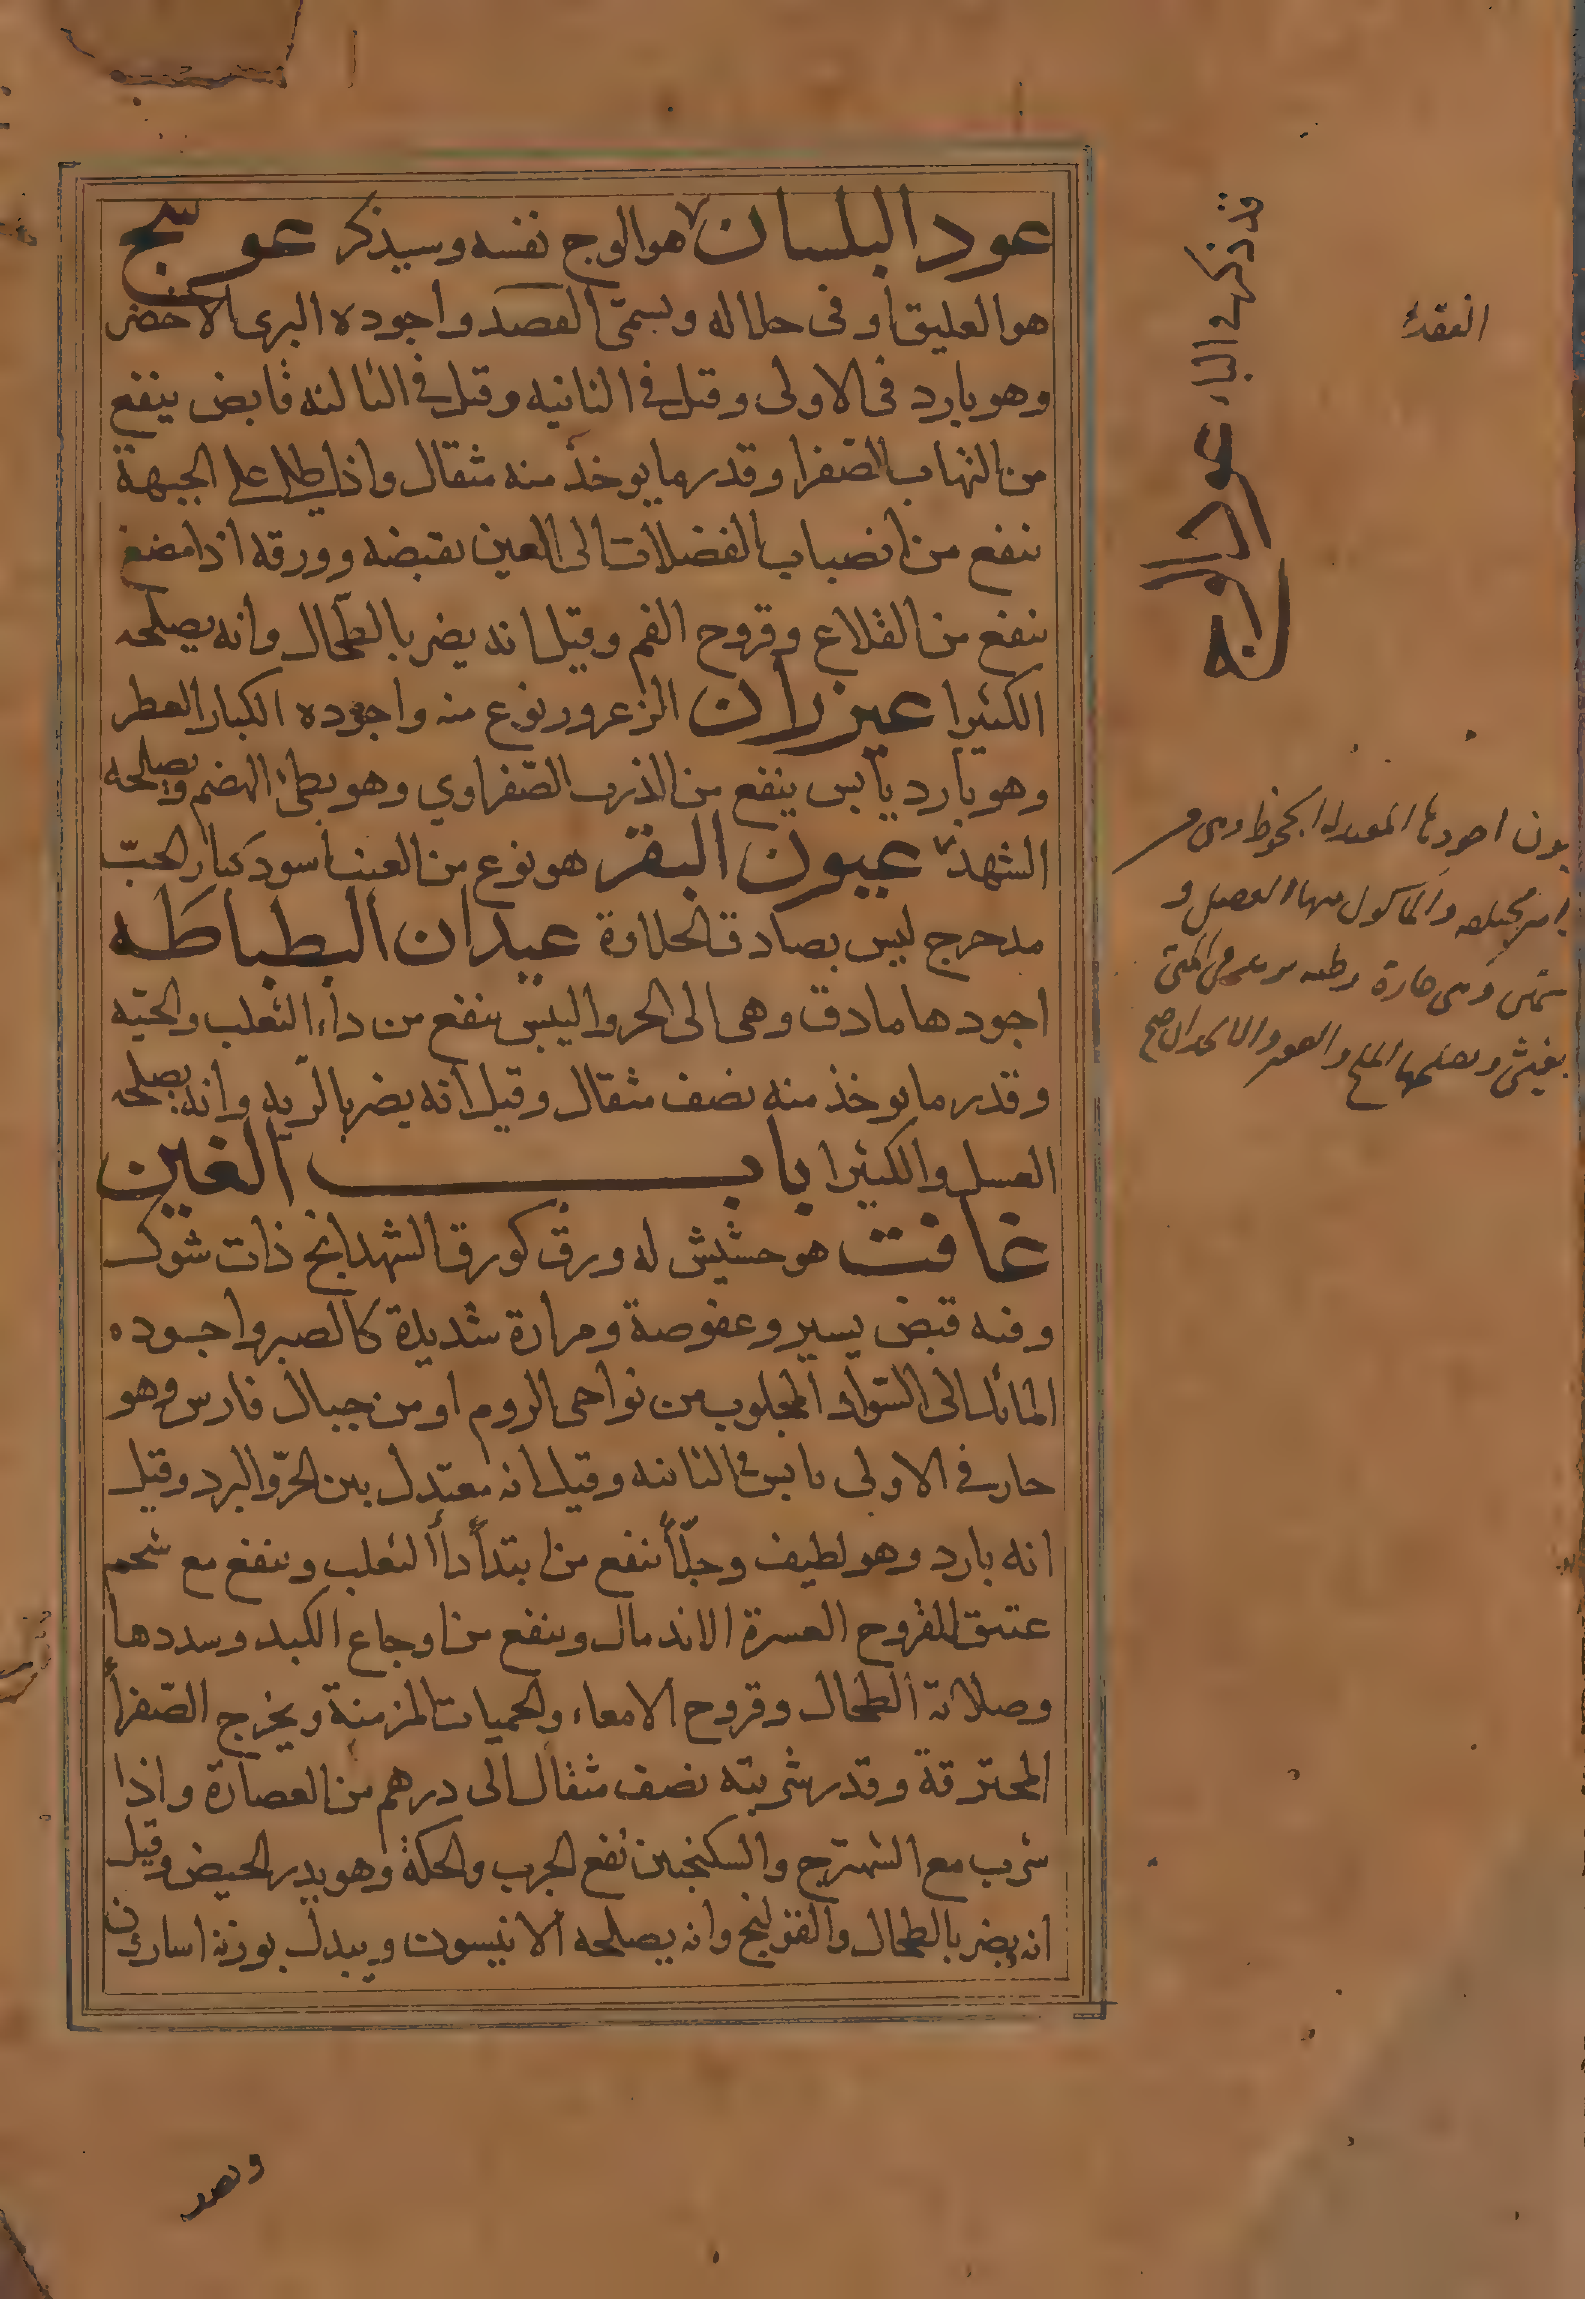 عود البلسان هو الوج نفسه وسيذكر عوسج
هو العليق او فى حلاله ويسمى القصد واجوده البرى الاخضر
وهو بارد فى الاولى وقيل فى الثانيه وقيل فى الثالثه قابض ينفع
من التهاب الصفرا وقدر ما يوخذ منه مثقال واذا طلى على الجبهة
ينفع من انصباب الفضلات الى العين بقبضه وورقه اذا مضغ
ينفع من القلاع وقروح الفم وقيل انه يضر بالطحال وانه يصلحه
الكثيرا عيزران الزعرور نوع منه واجوده الكبار العطر
وهو بارد يابس ينفع من الذرب الصفراوي وهو بطئ الهضم ويصلحه
الشهد عيون البقر هو نوع من العنب اسود كبار الحبّ
مدحرج ليس بصادق الحلاوة عيدان البطباطه
اجودها مادق وهى الى الحر واليبس ينفع من داء الثعلب والحيّه
وقدر ما يوخذ منه نصف مثقال وقيل انه يضر بالريه وانه يصلحه
العسل والكثيرا باب الغين
غافت هو حشيش له ورق كورق الشهدانج ذات شوك
وفيه قبض يسير وعفوصة ومرارة شديدة كالصبر واجوده
المائل الى السواد المجلوب من نواحى الروم او من جبال فارس وهو
حار فى الاولى يابس فى الثانيه وقيل انه معتدل بين الحرّ والبرد وقيل
انه بارد وهو لطيف وجلّاأ ينفع من ابتدأ دأ الثعلب وينفع مع شحم
عتيق للقروح العسرة الاندمال وينفع من اوجاع الكبد وسددها
وصلابة الطحال وقروح الامعاء والحميات المزمنة ويخرج الصفرأ
المحترقة وقدر شربته نصف مثقال الى درهم من العصارة واذا
شرب مع الشهترج والسكنجبين نفع الجرب والحكة وهو يدر الحيض وقيل
انه يضر بالطحال والقولنج وانه يصلحه الانيسون ويبدل بوزنه اسارون
وهد
قد ذكر فى الباء عود الوج
العقد